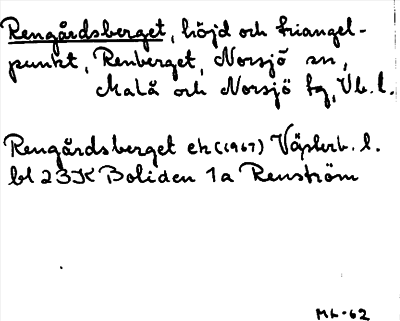 Rengårdsberget, höjd och triangel-
punkt, Renberget, Norsjö sn,
Malå och Norsjö tg, Vb. l.
Rengårdsberget ek (1967) Västerb. l.
bl 23K Boliden 1a Renström
ML-62